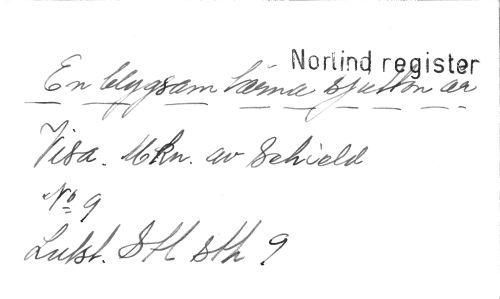 Norlind register
En blygsam tärna sjutton år
Visa. Mkn. av Schield
No 9
Lutst. StH sth 9